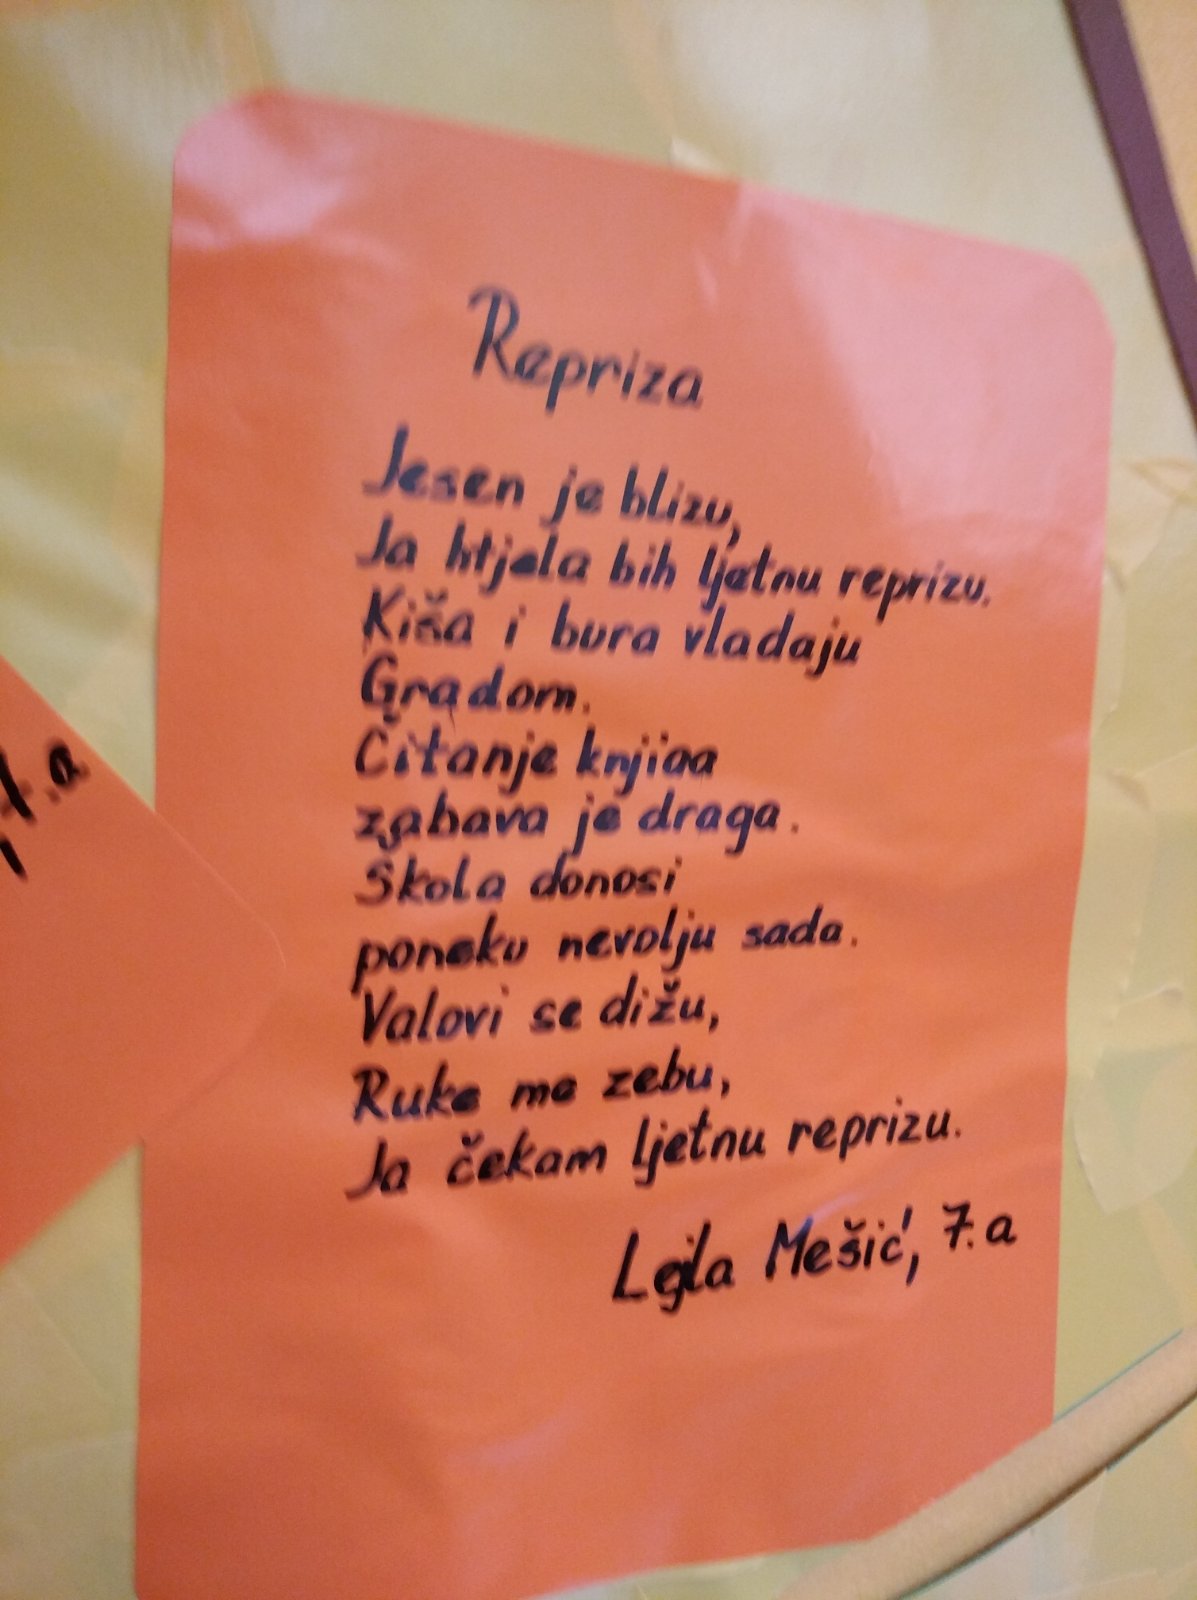 Repriza
Jesen je blizu,
Ja htjela bih ljetnu reprizu.
Kiša i bura vladaju
Gradom.
Čitanje knjiga
zabava je draga.
Škola donosi
poneku nevolju sada.
Valovi se dižu,
Ruke me zebu,
Ja čekam ljetnu reprizu.
Lejla Mešić, 7.a
7.a